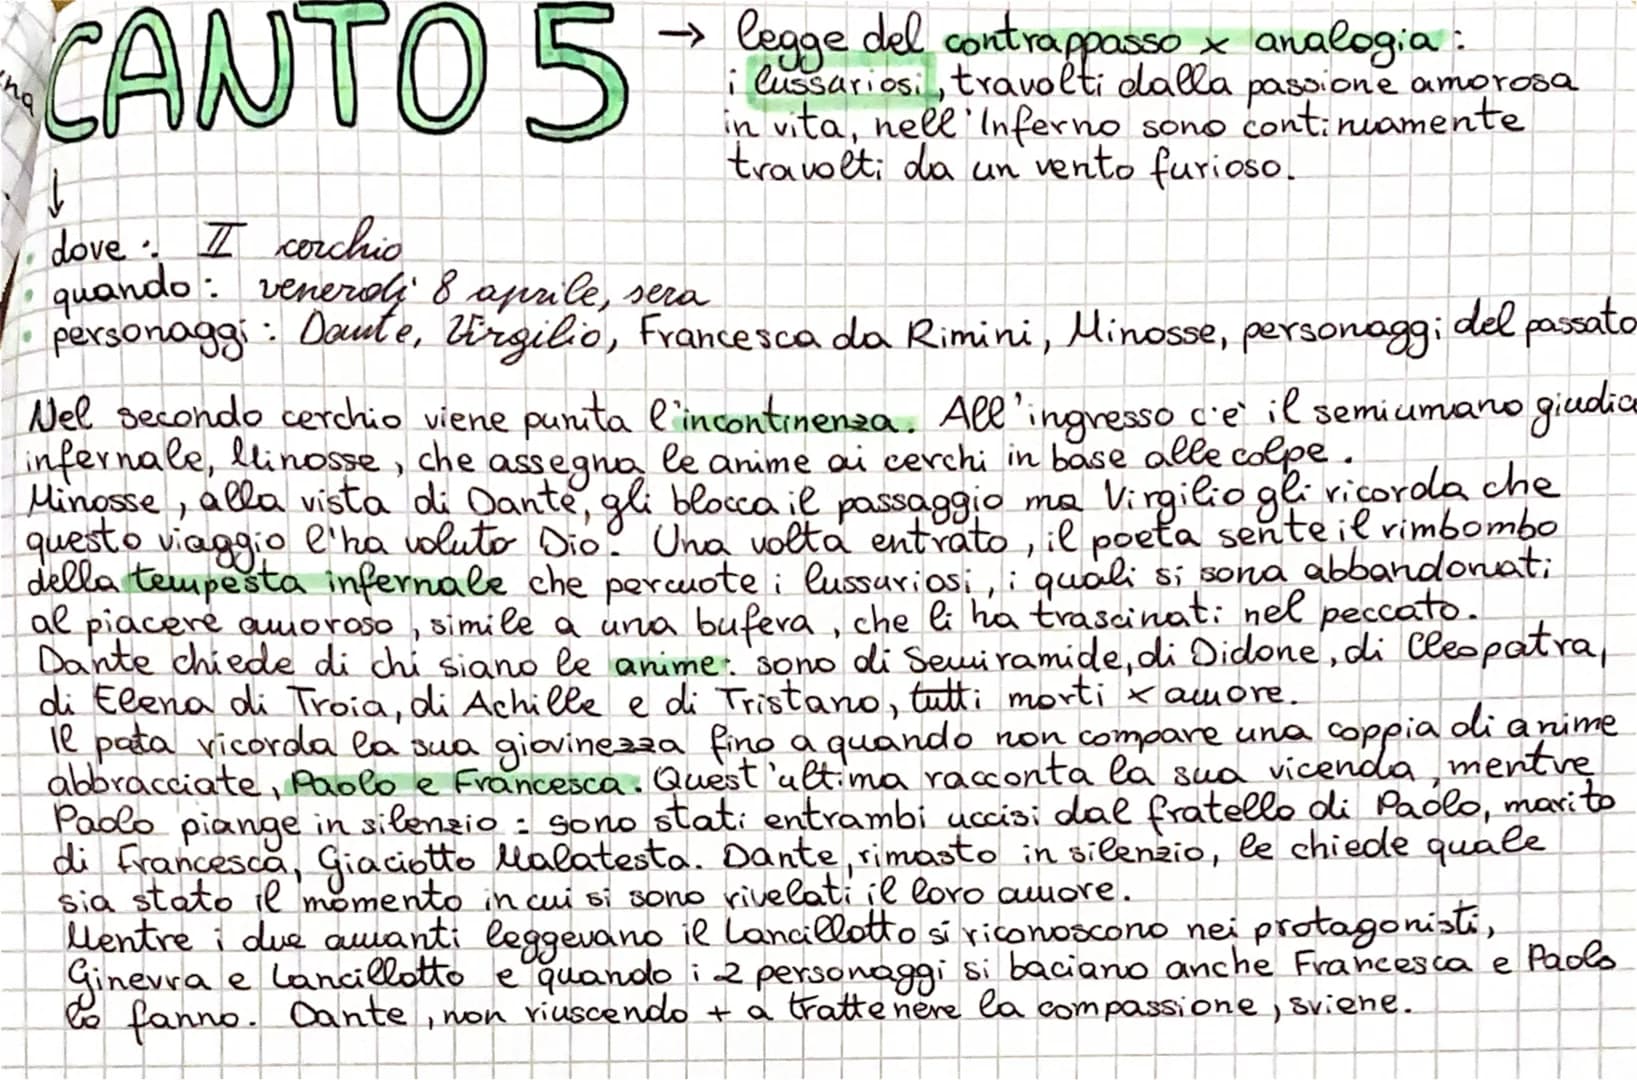 CANTO 5 → legge del contrappasso x analogia:
i lussuriosi, travolti dalla passione amorosa
in vita, nell'Inferno sono continuamente
travolti da un vento furioso.
↓
• dove: II cerchio
• quando: venerdi' 8 aprile, sera
• personaggi: Dante, Virgilio, Francesca da Rimini, Minosse, personaggi del passato
Nel secondo cerchio viene punita l'incontinenza. All'ingresso c'e' il semiumano giudice
infernale, Minosse, che assegna le anime ai cerchi in base alle colpe.
Minosse, alla vista di Dante, gli blocca il passaggio ma Virgilio gli ricorda che
questo viaggio l'ha voluto Dio. Una volta entrato, il poeta sente il rimbombo
della tempesta infernale che percuote i lussuriosi, i quali si sono abbandonati
al piacere amoroso, simile a una bufera, che li ha trascinati nel peccato.
Dante chiede di chi siano le anime: sono di Semiramide, di Didone, di Cleopatra,
di Elena di Troia, di Achille e di Tristano, tutti morti x amore.
Il pota ricorda la sua giovinezza fino a quando non compare una coppia di anime
abbracciate, Paolo e Francesca. Quest'ultima racconta la sua vicenda, mentre
Paolo piange in silenzio: sono stati entrambi uccisi dal fratello di Paolo, marito
di Francesca, Giaciotto Malatesta. Dante, rimasto in silenzio, le chiede quale
sia stato il momento in cui si sono rivelati il loro amore.
Mentre i due amanti leggevano il Lancillotto si riconoscono nei protagonisti,
Ginevra e Lancillotto e quando i 2 personaggi si baciano anche Francesca e Paolo
lo fanno. Dante, non riuscendo + a trattenere la compassione, sviene.